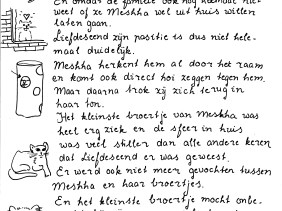 En omdat de familie ook nog helemaal niet
weet of ze Meshha wel uit huis willen
laten gaan.
Liefdeseend zijn positie is dus niet hele-
maal duidelijk.
Meshha herkent hem al door het raam
en komt ook direct hoi zeggen tegen hem.
Maar daarna trok zij zich terug in
haar ton.
Het kleinste broertje van Meshha was
heel erg ziek en de sfeer in huis
was veel stiller dan alle andere keren
dat Liefdeseend er was geweest.
Er werd ook niet meer gevochten tussen
Meshha en haar broertjes.
En het kleinste broertje mocht onbe-